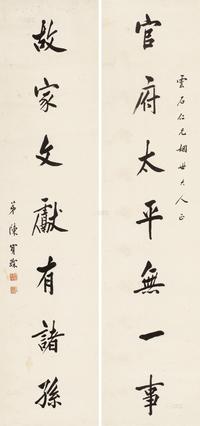 雲石仁兄姻世大人正
官府太平無一事
故家文獻有諸孫
弟陳寶琛